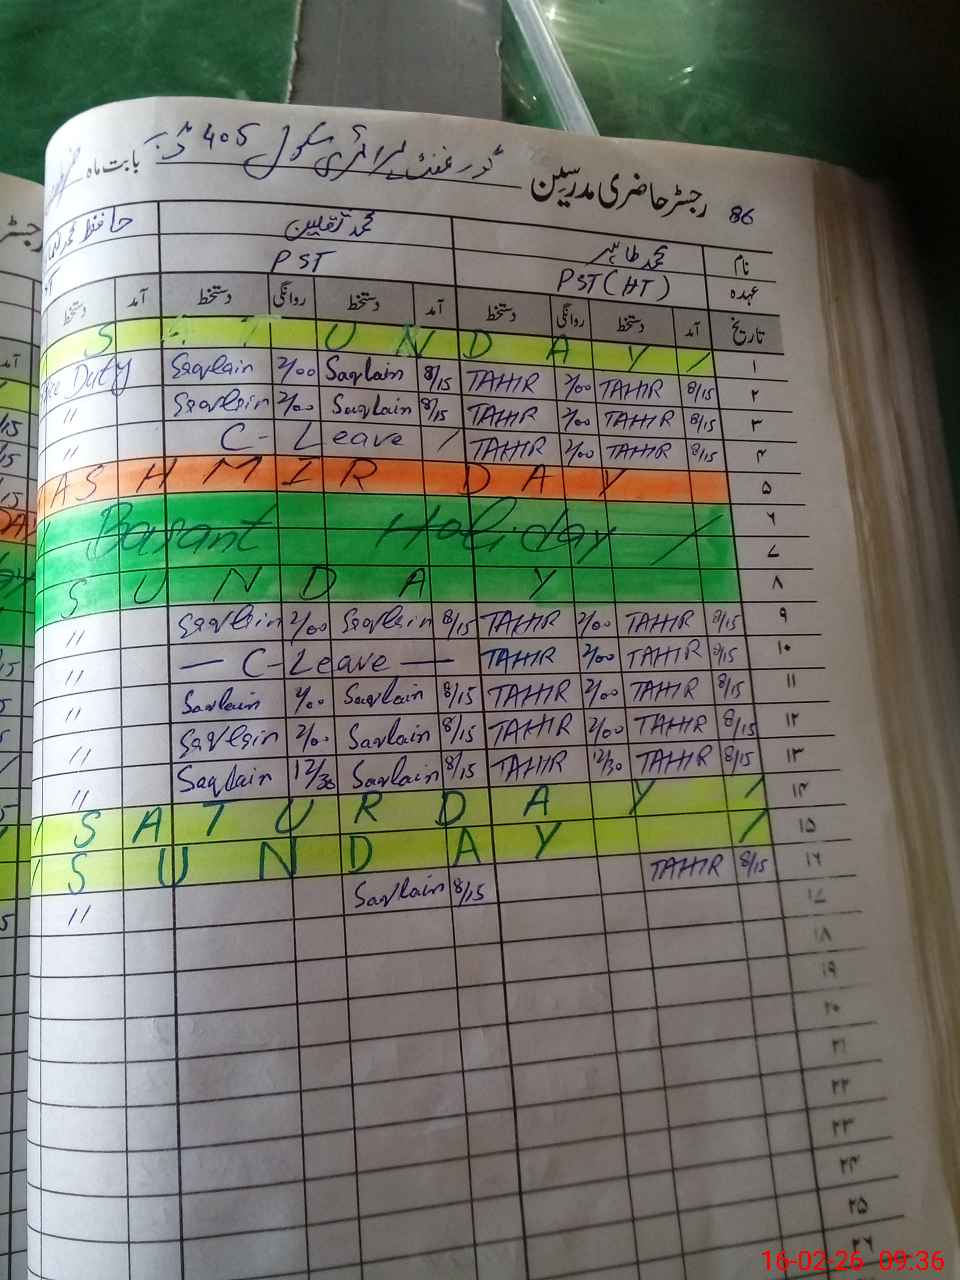 86 رجسٹر حاضری مدرسین گورنمنٹ پرائمری سکول 405 بابت ماہ
نام محمد طاہر محمد ثقلین حافظ محمد
عہدہ PST (HT) PST ST
تاریخ آمد دستخط روانگی دستخط آمد دستخط روانگی دستخط آمد دستخط
S A T U N D A Y / ۱
Duty Saqlain 2/00 Saqlain 8/15 TAHIR 2/00 TAHIR 8/15 ۲
" Saqlain 2/00 Saqlain 8/15 TAHIR 2/00 TAHIR 8/15 ۳
" C- Leave / TAHIR 2/00 TAHIR 8/15 ۴
ASHMIR DAY ۵
Basant Holiday / ۶
۷
SUNDAY ۸
" Saqlain 2/00 Saqlain 8/15 TAHIR 2/00 TAHIR 8/15 ۹
" — C-Leave — TAHIR 2/00 TAHIR 8/15 ۱۰
" Saqlain 2/00 Saqlain 8/15 TAHIR 2/00 TAHIR 8/15 ۱۱
" Saqlain 2/00 Saqlain 8/15 TAHIR 2/00 TAHIR 8/15 ۱۲
" Saqlain 12/30 Saqlain 8/15 TAHIR 12/30 TAHIR 8/15 ۱۳
/ SATURDAY / ۱۴
/ SUNDAY / ۱۵
" Saqlain 8/15 TAHIR 8/15 ۱۶
۱۷
۱۸
۱۹
۲۰
۲۱
۲۲
۲۳
۲۴
۲۵
۲۶
16-02-26 09:36